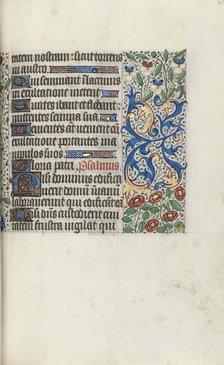 tatem nostram: sicut torrens
in austro.
Qui seminant in lacrimis
in exultatione metent.
Euntes ibant et flebant
mittentes semina sua.
Venientes autem venient cum
exultatione portantes ma
nipulos suos.
Gloria patri. Psalmus.
Nisi dominus edifica
verit domum in vanum
laboraverunt qui edificant ea
Nisi dominus custodierit civi
tatem frustra vigilat qui